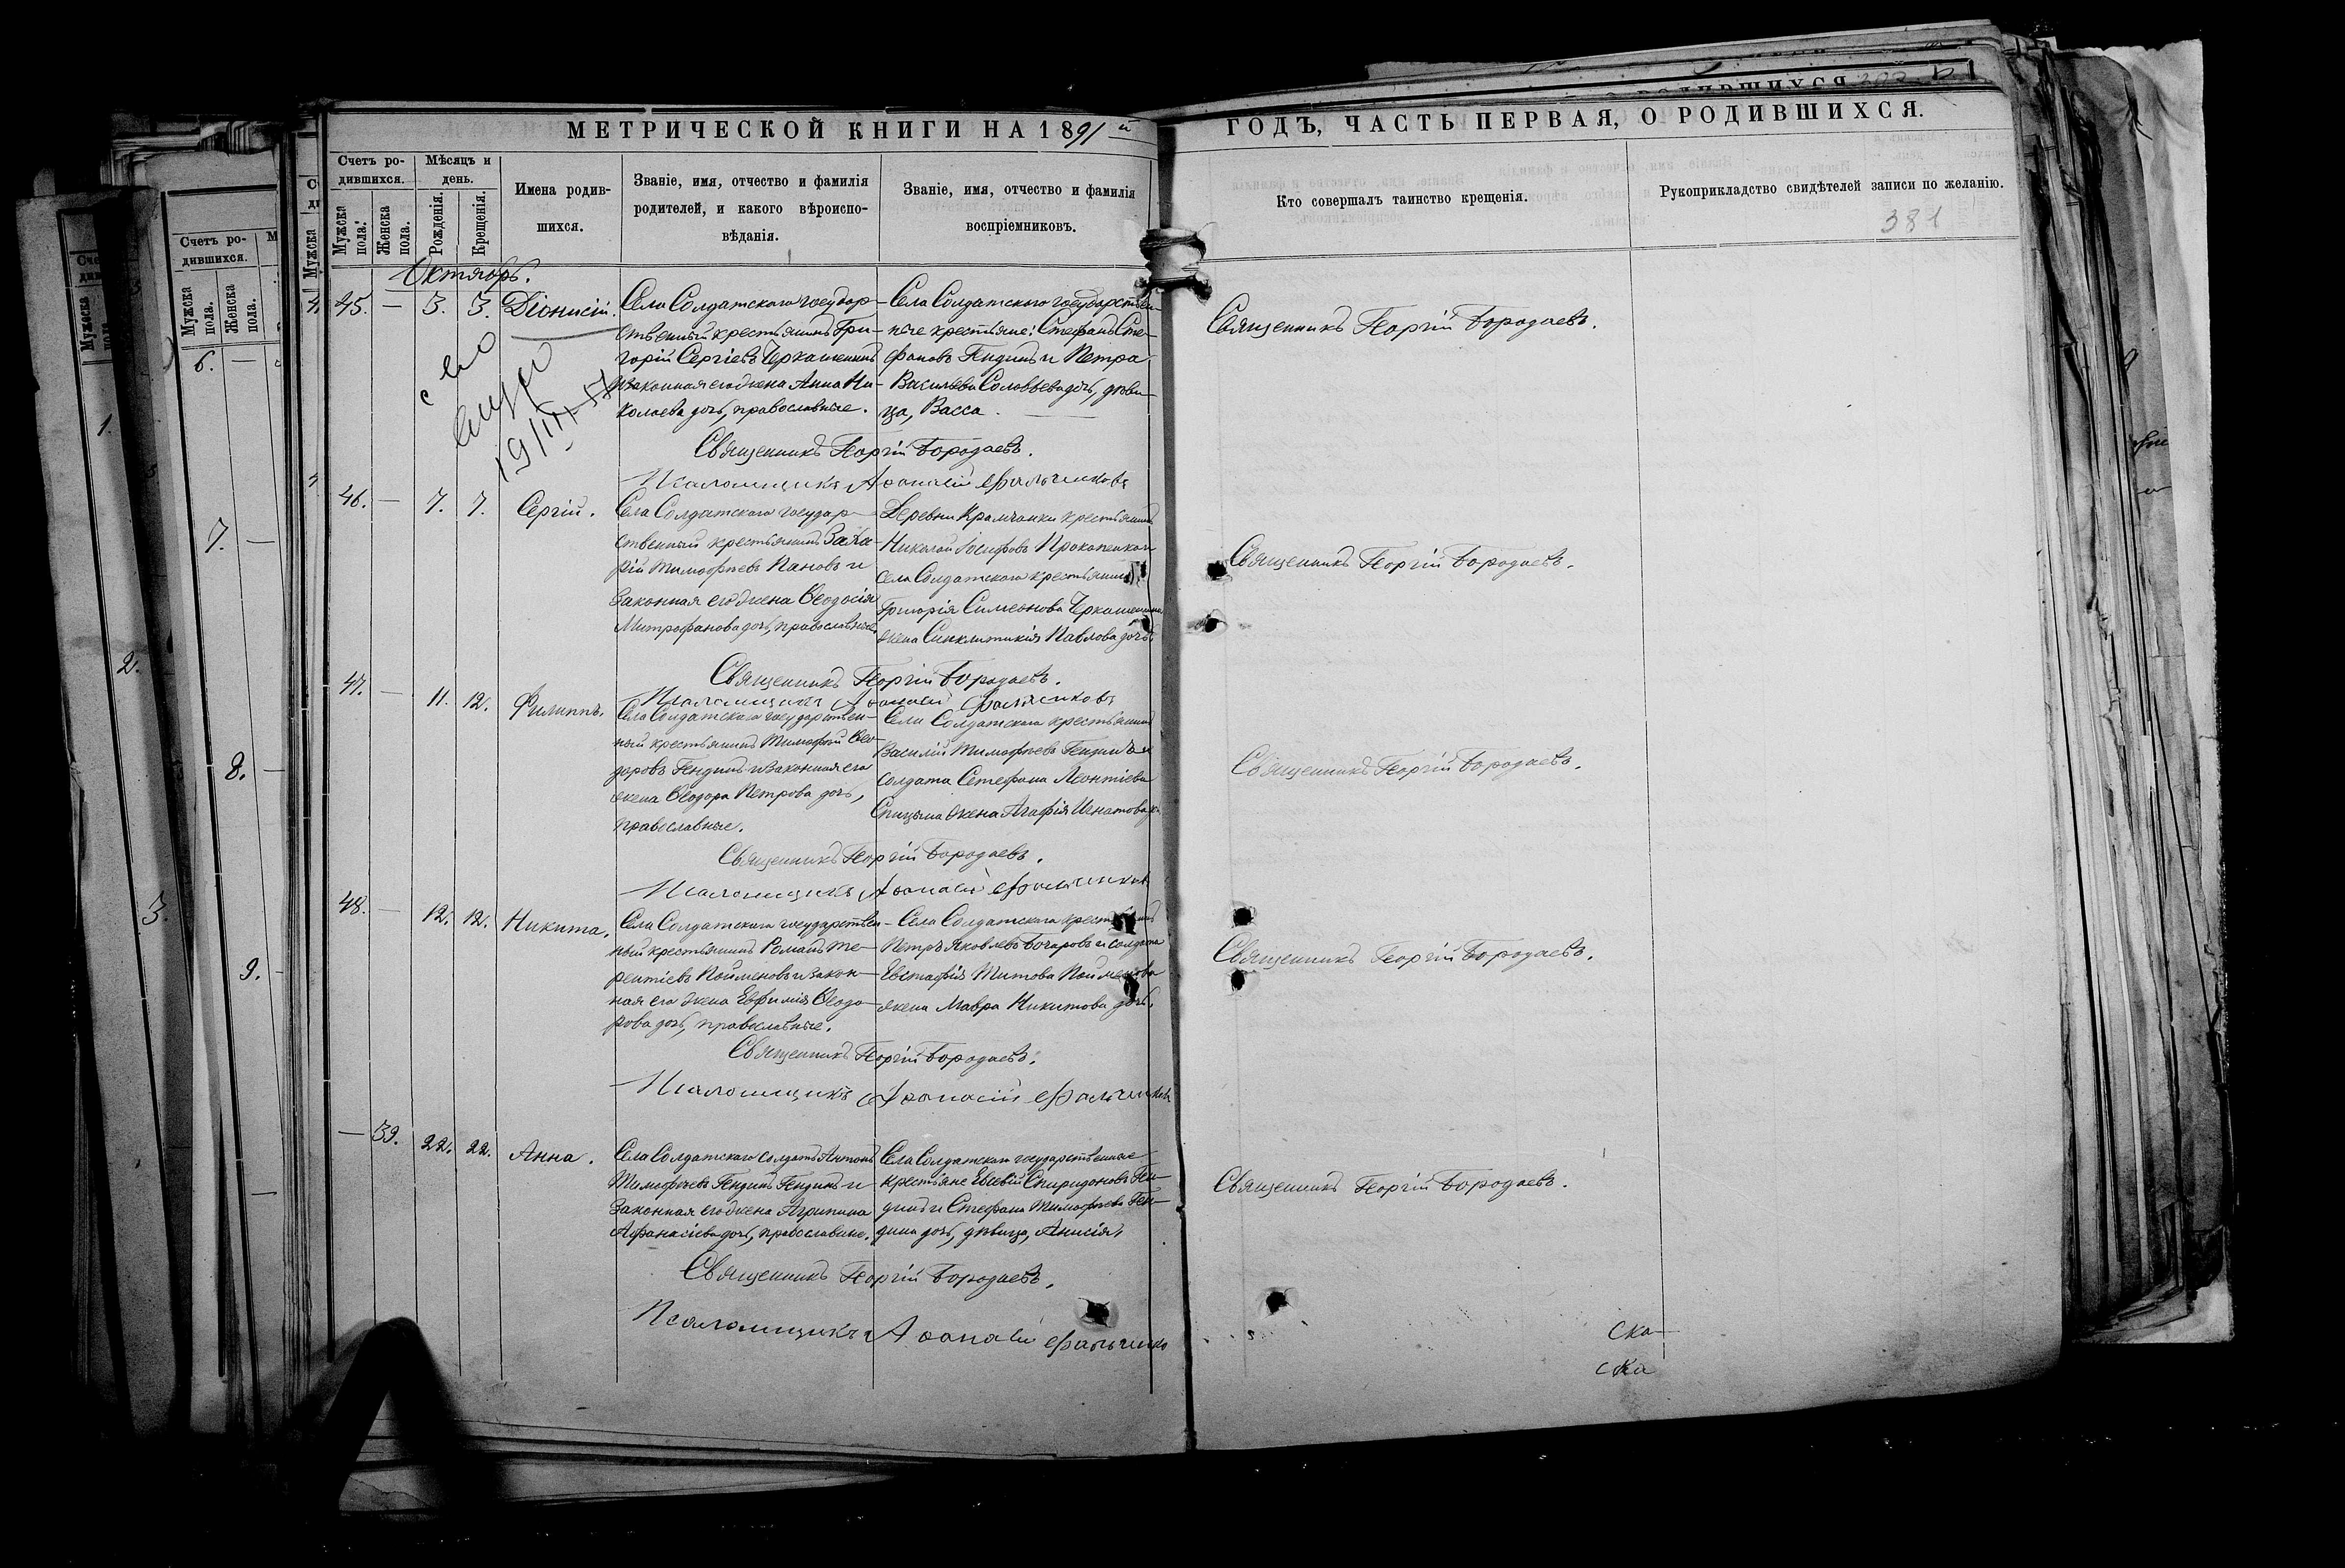 МЕТРИЧЕСКОЙ КНИГИ НА 1891-й
ГОДЪ, ЧАСТЬ ПЕРВАЯ, О РОДИВШИХСЯ.
Счетъ родившихся.
Мужска пола.
Женска пола.
Мѣсяцъ и день.
Рожденія.
Крещенія.
Имена родившихся.
Званіе, имя, отчество и фамилія
родителей, и какого вѣроиспо-
вѣданія.
Званіе, имя, отчество и фамилія
воспріемниковъ.
Кто совершалъ таинство крещенія.
Рукоприкладство свидѣтелей записи по желанію.
381
Октябрь.
45. — 3. 3. Діонисій.
Села Солдатскаго государ-
ственный крестьянинъ Гри-
горій Сергіевъ Черкашенинъ
и законная его жена Анна Ни-
колаева дочь, православные.
Села Солдатскаго государствен-
ные крестьяне: Стефанъ Сте-
фановъ Гендинъ и Петра
Васильева Соловьева дочь, дѣви-
ца, Васса.
Священникъ Георгій Бородаевъ.
Священникъ Георгій Бородаевъ.
Псаломщикъ Аѳонасій Фальченковъ
46. — 7. 7. Сергій.
Села Солдатскаго государ-
ственный крестьянинъ Заха-
рій Тимофѣевъ Пановъ и
законная его жена Ѳеодосія
Митрофанова дочь, православные.
Деревни Крамчанки крестьянинъ
Николай Іосифовъ Прокопенко и
села Солдатскаго крестьянина
Григорія Симеонова Черкашенина
жена Синклитикія Павлова дочь.
Священникъ Георгій Бородаевъ.
Священникъ Георгій Бородаевъ.
Псаломщикъ Аѳонасій Фальченковъ
47. — 11. 12. Филиппъ.
Села Солдатскаго государствен-
ный крестьянинъ Тимофей Ѳео-
доровъ Гендинъ и законная его
жена Ѳеодора Петрова дочь,
православные.
Села Солдатскаго крестьянинъ
Василій Тимофѣевъ Гендинъ и
солдата Стефана Леонтіева
Спицына жена Агафія Игнатова
Священникъ Георгій Бородаевъ.
Священникъ Георгій Бородаевъ.
Псаломщикъ Аѳонасій Фальченковъ
48. — 12. 12. Никита.
Села Солдатскаго государствен-
ный крестьянинъ Романъ Те-
рентіевъ Пойменовъ и закон-
ная его жена Евфимія Ѳеодо-
рова дочь, православные.
Села Солдатскаго крестьянинъ
Петръ Яковлевъ Бочаровъ и солдата
Евстафія Титова Пойменова
жена Мавра Никитова дочь.
Священникъ Георгій Бородаевъ.
Священникъ Георгій Бородаевъ.
Псаломщикъ Аѳонасій Фальченковъ
— 39. 22. 22. Анна.
Села Солдатскаго солдатъ Антонъ
Тимофеевъ Гендинъ Гендинъ и
законная его жена Агрипина
Афанасіева дочь, православные.
Села Солдатскаго государственные
крестьяне Евсевій Спиридоновъ Ген-
динъ и Стефана Тимофѣева Ген-
дина дочь, дѣвица, Анисія.
Священникъ Георгій Бородаевъ.
Священникъ Георгій Бородаевъ.
Псаломщикъ Аѳонасій Фальченко
ска-
ска